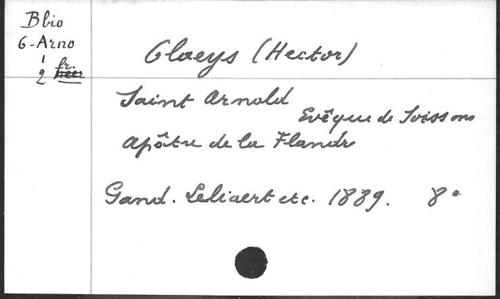 Bbio
6-Arno
1
2 fr.
Claeys (Hector)
Saint Arnold
Evêque de Soissons
Apôtre de la Flandre
Gand. Leliaert etc. 1889. 8°